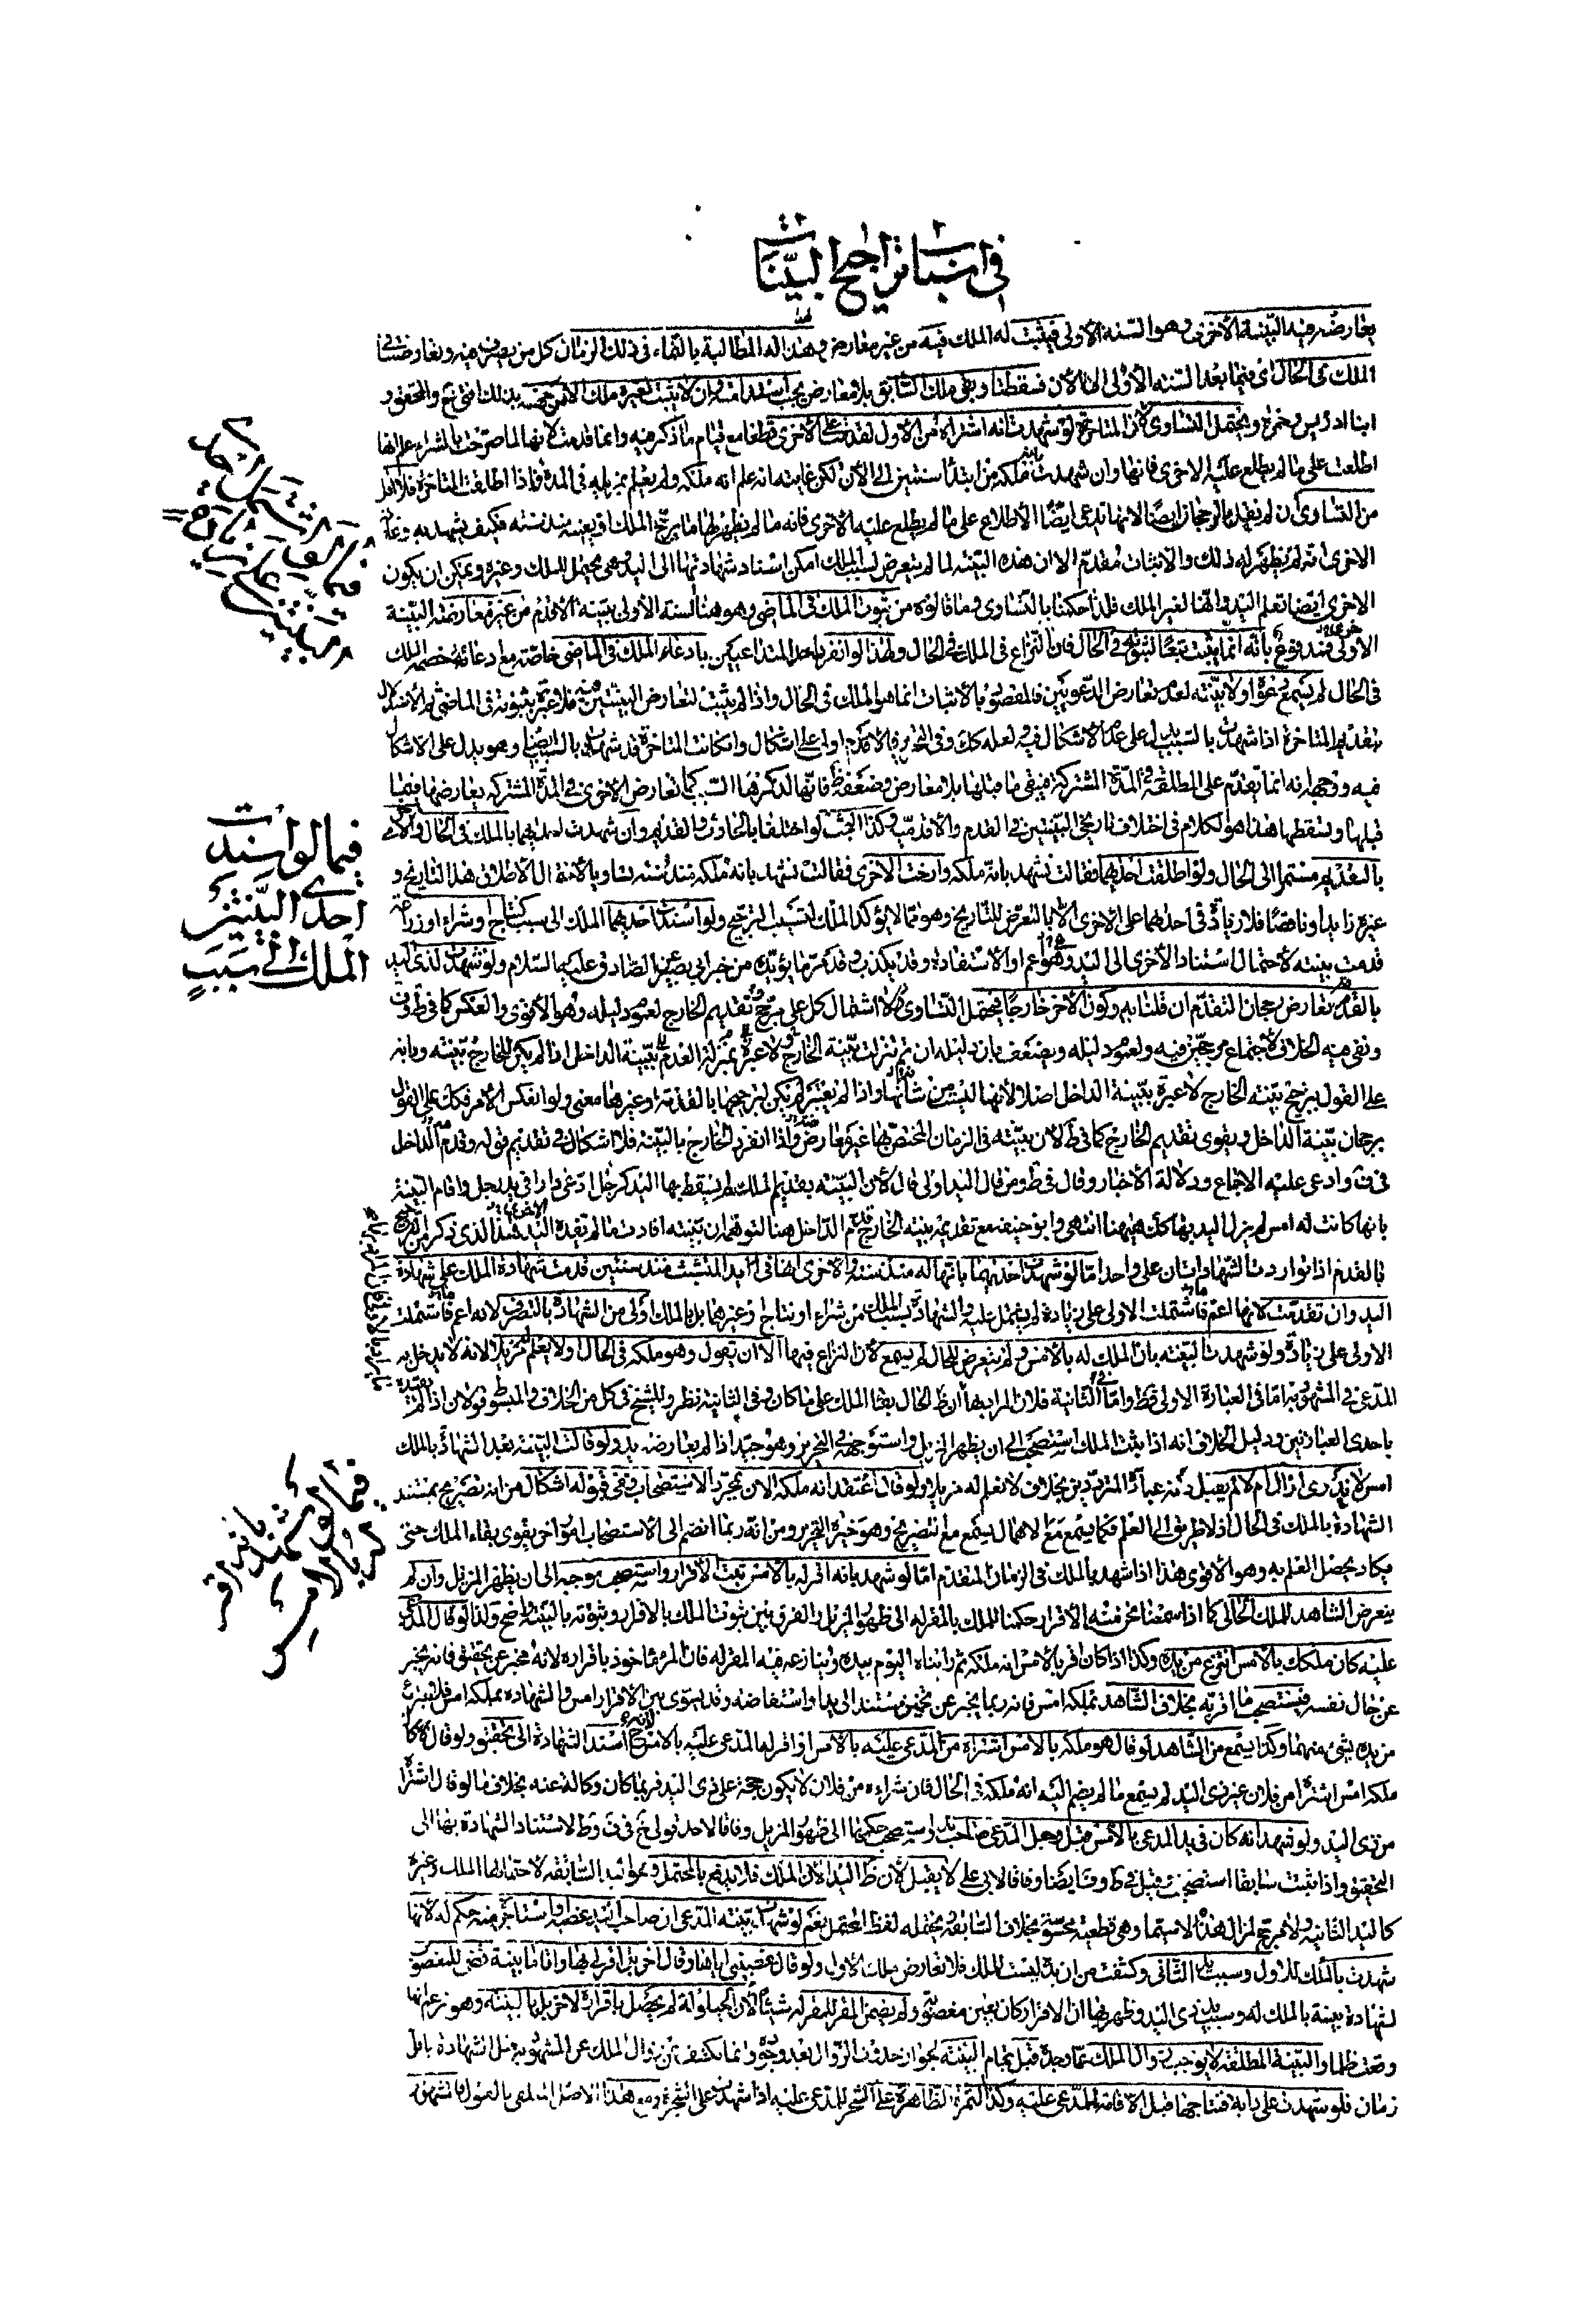 في اسباب تراجيح البينات
يعارضه فيه البينة الأخرى وهو السنة الأولى فيثبت له الملك فيه من غير معارض ولهذا له المطالبة بالنماء في ذلك الزمان كل من يصرف فيه وتعارضتا في
الملك في الحال اى فيما بعد السنة الأولى الى الآن فسقطتا وبقي ملك السابق بلا معارض يجب استدامته وان لا يثبت لغيره ملك الا من جهته بذلك افتى الشيخ والمحقق و
ابنا ادريس وحمزة ويحتمل التساوى لأن المتاخرة لو شهدت انه اشتراه من الأول لقدمت على الأخرى قطعا مع قيام ما ذكر فيه وانما قدمت لأنها لما صرحت بالشراء علم انها
اطلعت على ما لم يطلع عليه الاخرى فانها وان شهدت بانه ملكه من ابتداء سنتين الى الآن لكن غايته انه علم انه ملكه ولم يعلم بمزيله في المدة فاذا اطلقت المتاخرة فلا اقل
من التساوى ان لم نقل بالرجحان ايضا لانها تدعى ايضا الاطلاع على ما لم يطلع عليه الاخرى فانه ما لم يظهر لها ما يرجح الملك او يعينه منذ سنة فكيف يشهد به وغاية
الاخرى انه لم يظهر له ذلك والاثبات مقدم الا ان هذه البينة لما لم يتعرض لسبب الملك امكن استناد شهادتها الى اليد وهى محتمل للملك وغيره ويمكن ان يكون
الاخرى ايضا تعلم اليد وانها لغير الملك فلذا حكمنا بالتساوى وما قالوه من ثبوت الملك في الماضى وهو هنا السنة الأولى ببينة الاقدم من غير معارضة البينة
الاولى فمدفوع بأنه انما يثبت تبعا لثبوته في الحال فان النزاع في الملك في الحال ولهذا لو انفرد احد المتداعيين بادعاء الملك في الماضى خاصة مع ادعائه خصمه الملك
في الحال لم يسمع دعواه ولا بينته لعدم تعارض الدعويين فالمقصود بالاثبات انما هو الملك في الحال واذا لم يثبت لتعارض البينتين فيه فلا عبرة بثبوته في الماضى
بتقديم المتاخرة اذا شهدت بالسبب يدل على عدم الاشكال فيه ولعله كك وفي التحرير والاقدم اولى على اشكال وان كانت المتاخرة قد شهدت بالسبب ايضا وهو يدل على الاشكال
فيه ووجهه انه انما يقدم على المطلقة في المدة المشتركة فيبقى ما قبلها بلا معارض وضعفه ظ فانها لذكرها السبب كما تعارض الأخرى في المدة المشتركة يعارضها فيما
قبلها ويسقطها هذا هو الكلام في اختلاف تاريخى البينتين في القدم والاقدمية وكذا البحث لو اختلفا بالحادث والقديم وان شهدت احديهما بالملك في الحال والاخرى
بالقديم مستمرا الى الحال ولو اطلقت احديهما فقالت نشهد بانه ملكه وارخت الاخرى فقالت نشهد بانه ملكه منذ سنة تساويا لاحتمال الاطلاق هذا التاريخ و
غيره زايدا وناقصا فلا زيادة في احديهما على الاخرى الا بالتعرض للتاريخ وهو مما لا يؤكد الملك ليتسبب الترجيح ولو اسندت احديهما الملك الى سبب كنتاج او شراء او زراعة
قدمت بينته لاحتمال استناد الأخرى الى اليد وهو اعم او الاستفادة وقد يكذب وقد مر ما يؤيده من خبر ابى بصير عن الصادق عليه السلام ولو شهدت لذى اليد
بالقديم تعارض رجحان التقدم ان قلنا به وكون الآخر خارجا فيحتمل التساوى لاشتمال كل على مرجح وتقديم الخارج لعموم دليله وهو الاقوى والعكس كما في ط وف
ونفى فيه الخلاف لاجتماع مرجحين فيه ولعموم دليله ويضعف بان دليله ان تم تنزلت بينة الخارج ولا عبرة بمنزلة العدم ببينة الداخل اذا لم يكن للخارج بينة وبانه
على القول بترجيح بينة الخارج لا عبرة ببينة الداخل اصلا لأنها ليست من شأنها واذا لم يعتبر لم يكن لترجيحها بالقدم او غيرها معنى ولو انعكس الأمر فكك على القول
برجحان بينة الداخل ويقوى تقديم الخارج كما في ط لأن بينته في الزمان المختص بها غير معارض واذا انفرد الخارج بالبينة فلا اشكال في تقديم قوله وقدم الداخل
في ف وادعى عليه الاجماع ودلالة الأخبار وقال في ط ومن قال اليد اولى قال لأن البينة بقديم الملك لم يسقط بها اليد كرجل ادعى دارا في يد رجل واقام البينة
بانها كانت له امس لم يزل اليد بها كك ههنا انتهى وابو حنيفة مع تقديمه بينة الخارج قدم الداخل هنا لتوهمه ان بينته افادت ما لم تفده اليد هذا الذى ذكر من الترجيح
بالقدم اذا تواردت الشهادتان على واحد اما لو شهدت احديهما بانها له منذ سنة والاخرى انها في يد المتشبث منذ سنتين قدمت شهادة الملك على شهادة
اليد وان تقدمت لانها اعم فاشتملت الاولى على زيادة لم يشتمل عليه والشهادة بسبب الملك من شراء او نتاج وغيرهما بل بالملك اولى من الشهادة بالتصرف لانه اعم فاشتملت
الاولى على زيادة ولو شهدت البينة بان الملك له بالامس ولم يتعرض للحال لم يسمع لأن النزاع فيها الا ان يقول وهو ملكه في الحال اولا يعلم له مزيلا لانه لا يدخل به
المدعى في المشهود به اما في العبارة الاولى فظ واما في الثانية فلان المراد بها ان ظ الحال بقاء الملك على ما كان وفي الثانية نظر وللشيخ في كل من الخلاف والمبسوط قولان اذا لم تقيده
باحدى العبارتين ودليل الخلاف انه اذا ثبت الملك استصحب الى ان يظهر المزيل واستوجهه في التحرير وهو جيد اذا لم يعارضه يد ولو قالت البينة بعد الشهادة بالملك
امس لا ندرى ازال ام لا لم يقبل لأنه عبارة المترددين بخلاف لا نعلم له مزيلا ولو قال اعتقد انه ملكه الآن بمجرد الاستصحاب ففي قبوله اشكال من انه تصريح بمستند
الشهادة بالملك في الحال اذ لا طريق الى العلم فكما يسمع مع الاهمال يسمع مع التصريح وهو خيرة التحرير ومن انه ربما انضم الى الاستصحاب امور اخر يقوى بقاء الملك حتى
يكاد يحصل العلم به وهو الاقوى هذا اذا شهد بالملك في الزمان المتقدم اما لو شهد بانه اقر له بالامس ثبت الاقرار واستصحب موجبه الى ان يظهر المزيل وان لم
يتعرض الشاهد للملك الحالى كما اذا سمعنا نحن منه الأقرار حكمنا للملك بالمقر له الى ظهور المزيل والفرق بين ثبوت الملك بالاقرار وثبوته بالبينة واضح ولو قال المدعى
عليه كان ملكك بالأمس انتزع من يده وكذا اذا كان اقر بالامس انه ملكه ثم رايناه اليوم بيده وينازعه فيه المقر له فان المرء ماخوذ باقراره لانه مخبر عن تحقيق فانه يخبر
عن حال نفسه فيستصحب ما اقر به بخلاف الشاهد بملكه امس فانه ربما يخبر عن تخمين مستند الى يد او استفاضة وقد يسوى بين الاقرار امس والشهادة بملكه امس فلا ينتزع
من يده بشئ منهما وكذا يسمع من الشاهد لو قال هو ملكه بالامس اشتراه من المدعى عليه بالأمس او اقر له المدعى عليه بالأمس لأنه اسند الشهادة الى تحقيق ولو قال كان
ملكه امس اشتراه من فلان غير ذى اليد لم يسمع ما لم يضم اليه انه ملكه في الحال فان شراءه من فلان لا يكون حجة على ذى اليد فربما كان وكالة عنه بخلاف ما لو قال اشتراه
من ذى اليد ولو شهد انه كان في يد المدعى بالأمس قبل وجعل المدعى صاحب يد واستصحب حكمها الى ظهور المزيل وفاقا لاحد قولى خ في ف وط لاستناد الشهادة بها الى
التحقيق واذا ثبتت سابقا استصحبت وقيل في ط وف ايضا وفاقا لابى على لا يقبل لأن ظ اليد الآن الملك فلا يدفع بالمحتمل وهو اليد السابقة لاحتمالها الملك وغيره
كاليد الثانية ولا مرجح لمزال هذا لا سيما وهى قطعية محسوسة بخلاف السابقة محتملة لفظ المحتمل نعم لو شهدت بينة المدعى ان صاحب اليد غصبه او استاجر منه حكم له لأنها
شهدت بالملك للاول وسبب يد الثانى وكشفت من ان يده ليست للملك فلا تعارض ملك الاول ولو قال غصبنى اياها وقال آخر بل اقر لى بها واقاما بينة قضى للمغصوب
لشهادة بينة بالملك له وسبب يد ذى اليد وظهر بها ان الاقرار كان بعين مغصوبة ولم يضمن المقر للمقر له شيئا لأن الحيلولة لم يحصل باقراره للاخر بل بالبينة وهو زعم انها
وقعت ظلما والبينة المطلقة لا يوجب زوال الملك عما وجد قبل قيام البينة لجواز حدوث الزوال بعد وجوده وانما يكشف عن زوال الملك عن المشهود به قبل الشهادة باقل
زمان فلو شهدت على دابة فنتاجها قبل الاقامة للمدعى عليه وكذا الثمرة الظاهرة على الشجر للمدعى عليه اذا شهدت على الشجرة ومع هذا
فيما لو اسندت
احدى البينتين
الملك الى سبب
فيما لو شهد بانه اقر
له بالامس